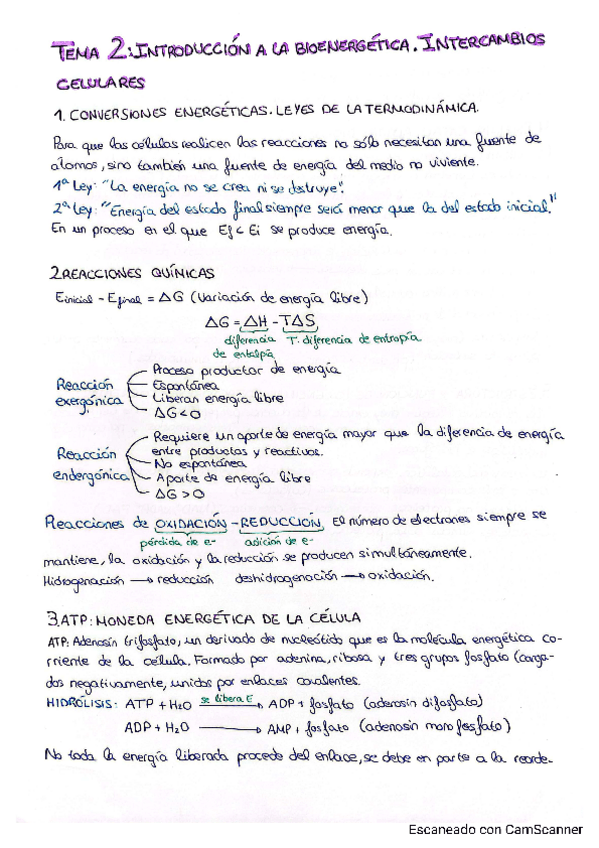 TEMA 2: INTRODUCCIÓN A LA BIOENERGÉTICA. INTERCAMBIOS
CELULARES
1. CONVERSIONES ENERGÉTICAS. LEYES DE LA TERMODINÁMICA.
Para que las células realicen las reacciones no sólo necesitan una fuente de
átomos, sino también una fuente de energía del medio no viviente.
1ª Ley: "La energía no se crea ni se destruye".
2ª Ley: "Energía del estado final siempre será menor que la del estado inicial."
En un proceso en el que Ef < Ei se produce energía.
2. REACCIONES QUÍNICAS
Einicial - Efinal = ΔG (Variación de energía libre)
ΔG = ΔH - TΔS
diferencia T. diferencia de entropía
de entalpía
Reacción exergónica
Proceso productor de energía
Espontánea
Liberan energía libre
ΔG < 0
Reacción endergónica
Requiere un aporte de energía mayor que la diferencia de energía
entre productos y reactivos.
No espontánea
Aporte de energía libre
ΔG > 0
Reacciones de OXIDACIÓN - REDUCCIÓN. El número de electrones siempre se
pérdida de e- adición de e-
mantiene, la oxidación y la reducción se producen simultáneamente.
Hidrogenación → reducción deshidrogenación → oxidación.
3. ATP: MONEDA ENERGÉTICA DE LA CÉLULA
ATP: Adenosín trifosfato, un derivado de nucleótido que es la molécula energética co-
rriente de la célula. Formado por adenina, ribosa y tres grupos fosfato (carga-
dos negativamente, unidos por enlaces covalentes.
HIDRÓLISIS: ATP + H2O se libera E → ADP + fosfato (adenosin difosfato)
ADP + H2O → AMP + fosfato (adenosin monofosfato)
No toda la energía liberada procede del enlace, se debe en parte a la reorde-
Escaneado con CamScanner